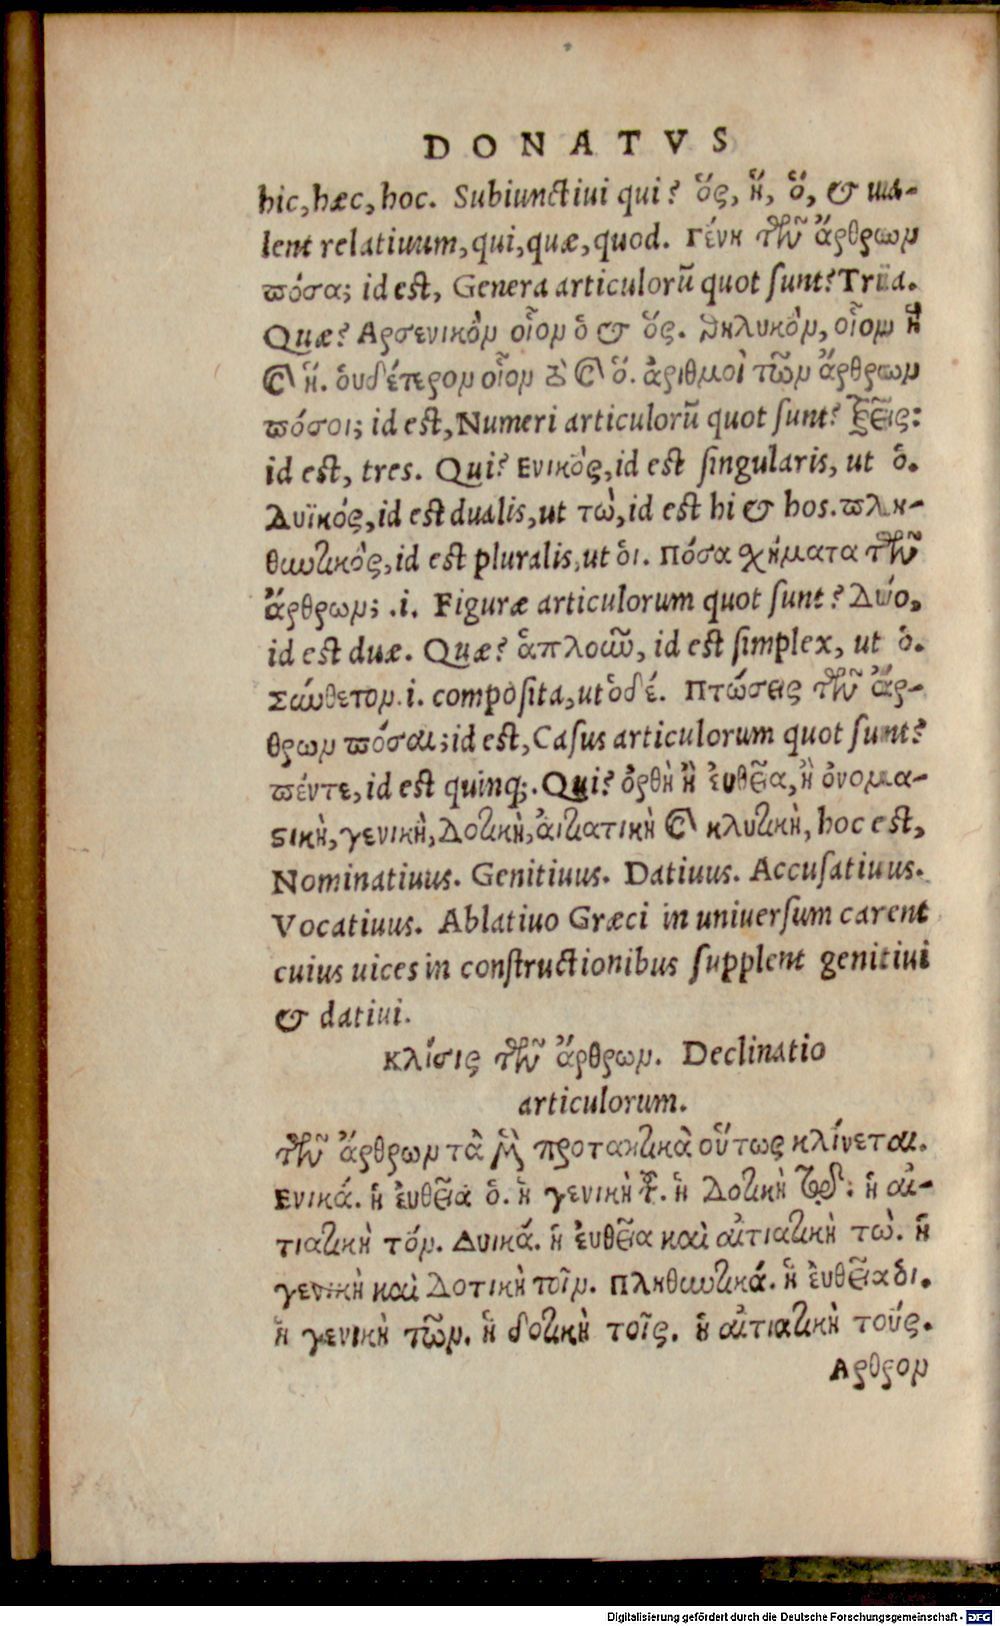 DONATVS
hic, hæc, hoc. Subiunctiui qui? ὅς, ἥ, ὅ, & ua-
lent relatiuum, qui, quæ, quod. Γένη τῶν ἄρθρων
πόσα; id est, Genera articulorũ quot sunt? Tria.
Quæ? Αρσενικὸν οἷον ὁ & ὅς. θηλυκὸν, οἷον ἡ
καὶ ἥ. ὀυδέτερον οἷον τὸ καὶ ὅ. ἀριθμοὶ τῶν ἄρθρων
πόσοι; id est, Numeri articulorũ quot sunt? τρεῖς:
id est, tres. Qui? Ενικὸς, id est singularis, ut ὁ.
Δυϊκός, id est dualis, ut τὼ, id est hi & hos. πλη-
θυντικὸς, id est pluralis, ut ὁι. Πόσα σχήματα τῶν
ἄρθρων; .i. Figuræ articulorum quot sunt? Δύο,
id est duæ. Quæ? ἁπλοῦν, id est simplex, ut ὁ.
Σύνθετον .i. composita, ut ὁδέ. Πτώσεις τῶν ἄρ-
θρων πόσαι; id est, Casus articulorum quot sunt?
πέντε, id est quinq;. Qui? ὀρθὴ ἢ ἐυθεῖα, ἢ ὀνομα-
στικὴ, γενικὴ, Δοτικὴ, ἀιτιατικὴ καὶ κλητικὴ, hoc est,
Nominatiuus. Genitiuus. Datiuus. Accusatiuus.
Vocatiuus. Ablatiuo Græci in uniuersum carent
cuius uices in constructionibus supplent genitiui
& datiui.
Κλίσις τῶν ἄρθρων. Declinatio
articulorum.
τῶν ἄρθρων τὰ μὲν προτακτικὰ οὕτως κλίνεται.
Ενικά. ἡ ἐυθεῖα ὁ. ἡ γενικὴ τοῦ. ἡ Δοτικὴ τῷ: ἡ αἰ-
τιατικὴ τόν. Δυικά. ἡ ἐυθεῖα καὶ αἰτιατικὴ τὼ. ἡ
γενικὴ καὶ Δοτικὴ τοῖν. Πληθυντικά. ἡ ἐυθεῖα ὁι.
ἡ γενικὴ τῶν. ἡ δοτικὴ τοῖς. ἡ αἰτιατικὴ τούς.
Αρθρον
Digitalisierung gefördert durch die Deutsche Forschungsgemeinschaft - DFG